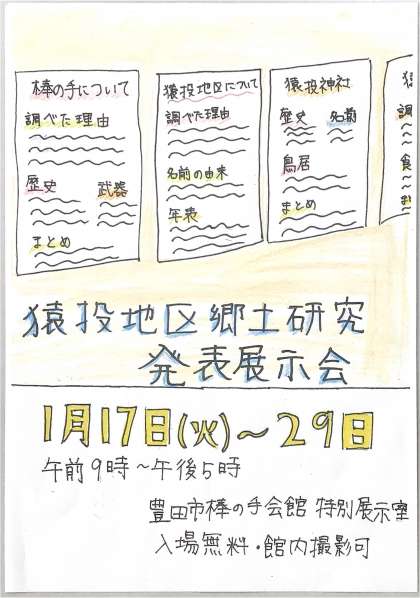 棒の手について
調べた理由
歴史
武器
まとめ
猿投地区について
調べた理由
名前の由来
年表
猿投神社
歴史
名前
鳥居
まとめ
猿投地区郷土研究
発表展示会
1月17日(火)~29日
午前9時~午後5時
豊田市棒の手会館 特別展示室
入場無料・館内撮影可